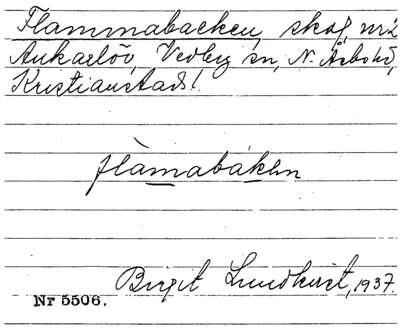 Flammabacken, skog, n:r 2
Ankarlöv, Vedby sn, N. Åsbo hd,
Kristianstads l.
flàmabákən
Birgit Lundkvist, 1937.
Nr 5506.